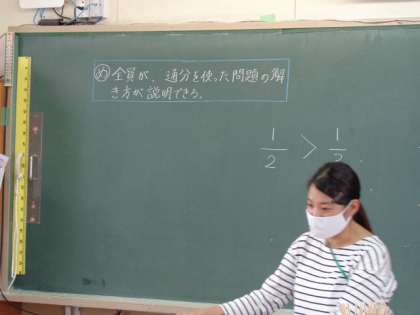 め 全員が、通分を使った問題の解
き方が説明できる。
1/2 > 1/3